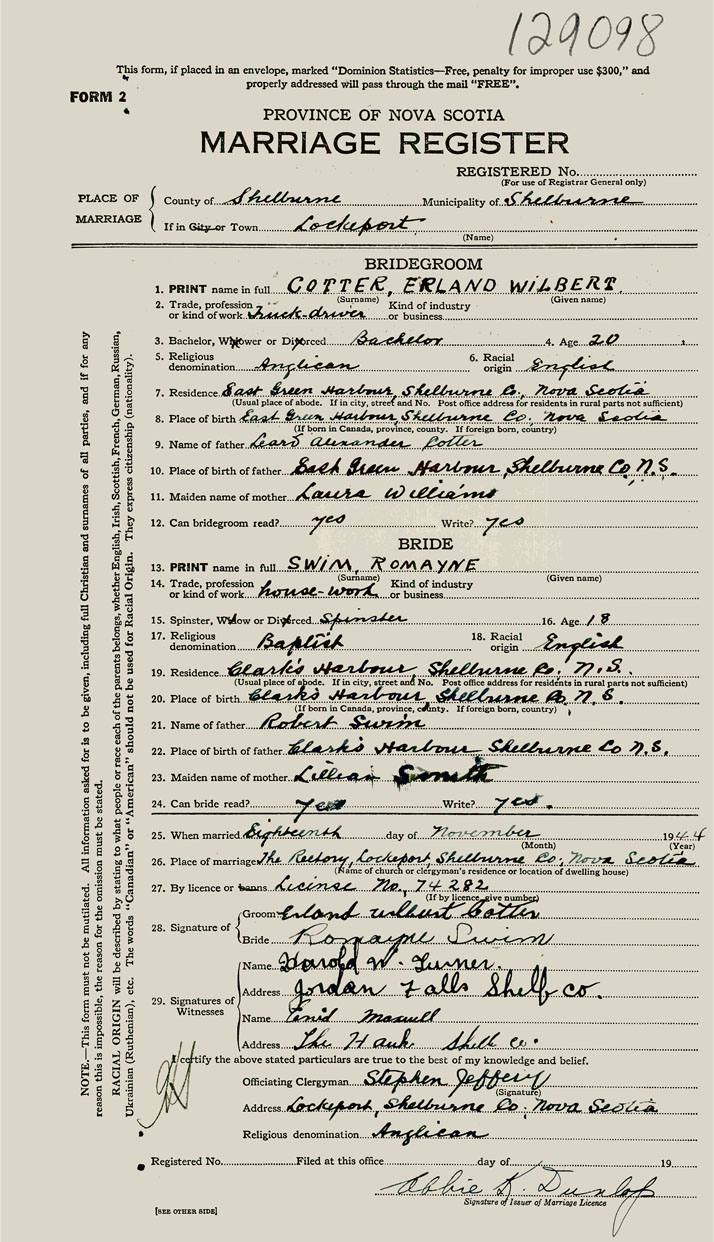 129098
This form, if placed in an envelope, marked “Dominion Statistics—Free, penalty for improper use $300,” and
properly addressed will pass through the mail “FREE”.
FORM 2
PROVINCE OF NOVA SCOTIA
MARRIAGE REGISTER
REGISTERED No.
(For use of Registrar General only)
PLACE OF MARRIAGE
County of Shelburne Municipality of Shelburne
If in City or Town Lockeport
(Name)
BRIDEGROOM
1. PRINT name in full COTTER, ERLAND WILBERT
(Surname) (Given name)
2. Trade, profession or kind of work Truck-driver Kind of industry or business
3. Bachelor, Widower or Divorced Bachelor 4. Age 20
5. Religious denomination Anglican 6. Racial origin English
7. Residence East Green Harbour, Shelburne Co, Nova Scotia
(Usual place of abode. If in city, street and No. Post office address for residents in rural parts not sufficient)
8. Place of birth East Green Harbour Shelburne Co. Nova Scotia
(If born in Canada, province, county. If foreign born, country)
9. Name of father Alexander Cotter
10. Place of birth of father East Green Harbour, Shelburne Co N.S.
11. Maiden name of mother Laura Williams
12. Can bridegroom read? yes Write? yes
BRIDE
13. PRINT name in full SWIM, ROMAYNE
(Surname) (Given name)
14. Trade, profession or kind of work house-work Kind of industry or business
15. Spinster, Widow or Divorced Spinster 16. Age 18
17. Religious denomination Baptist 18. Racial origin English
19. Residence Clark's Harbour, Shelburne Co. N.S.
(Usual place of abode. If in city, street and No. Post office address for residents in rural parts not sufficient)
20. Place of birth Clark's Harbour, Shelburne Co. N.S.
(If born in Canada, province, county. If foreign born, country)
21. Name of father Robert Swim
22. Place of birth of father Clark's Harbour Shelburne Co N.S.
23. Maiden name of mother Lillian Smith
24. Can bride read? yes Write? yes.
25. When married Eighteenth day of November 1944
(Month) (Year)
26. Place of marriage The Rectory, Lockeport, Shelburne Co., Nova Scotia
(Name of church or clergyman's residence or location of dwelling house)
27. By licence or banns License No. 74282
(If by licence, give number)
28. Signature of
Groom Erland Wilbert Cotter
Bride Romayne Swim
29. Signatures of Witnesses
Name Harold W. Turner.
Address Jordan Falls Shelb co.
Name Enid Maxwell
Address The Hawk Shelb Co.
I certify the above stated particulars are true to the best of my knowledge and belief.
Officiating Clergyman Stephen Jeffery
(Signature)
Address Lockeport, Shelburne Co. Nova Scotia
Religious denomination Anglican
Registered No. Filed at this office day of 19
Abbie K. Dunlop
Signature of Issuer of Marriage Licence
[SEE OTHER SIDE]
NOTE.—This form must not be mutilated. All information asked for is to be given, including full Christian and surnames of all parties, and if for any
reason this is impossible, the reason for the omission must be stated.
RACIAL ORIGIN will be described by stating to what people or race each of the parents belongs, whether English, Irish, Scottish, French, German, Russian,
Ukrainian (Ruthenian), etc. The words “Canadian” or “American” should not be used for Racial Origin. They express citizenship (nationality).